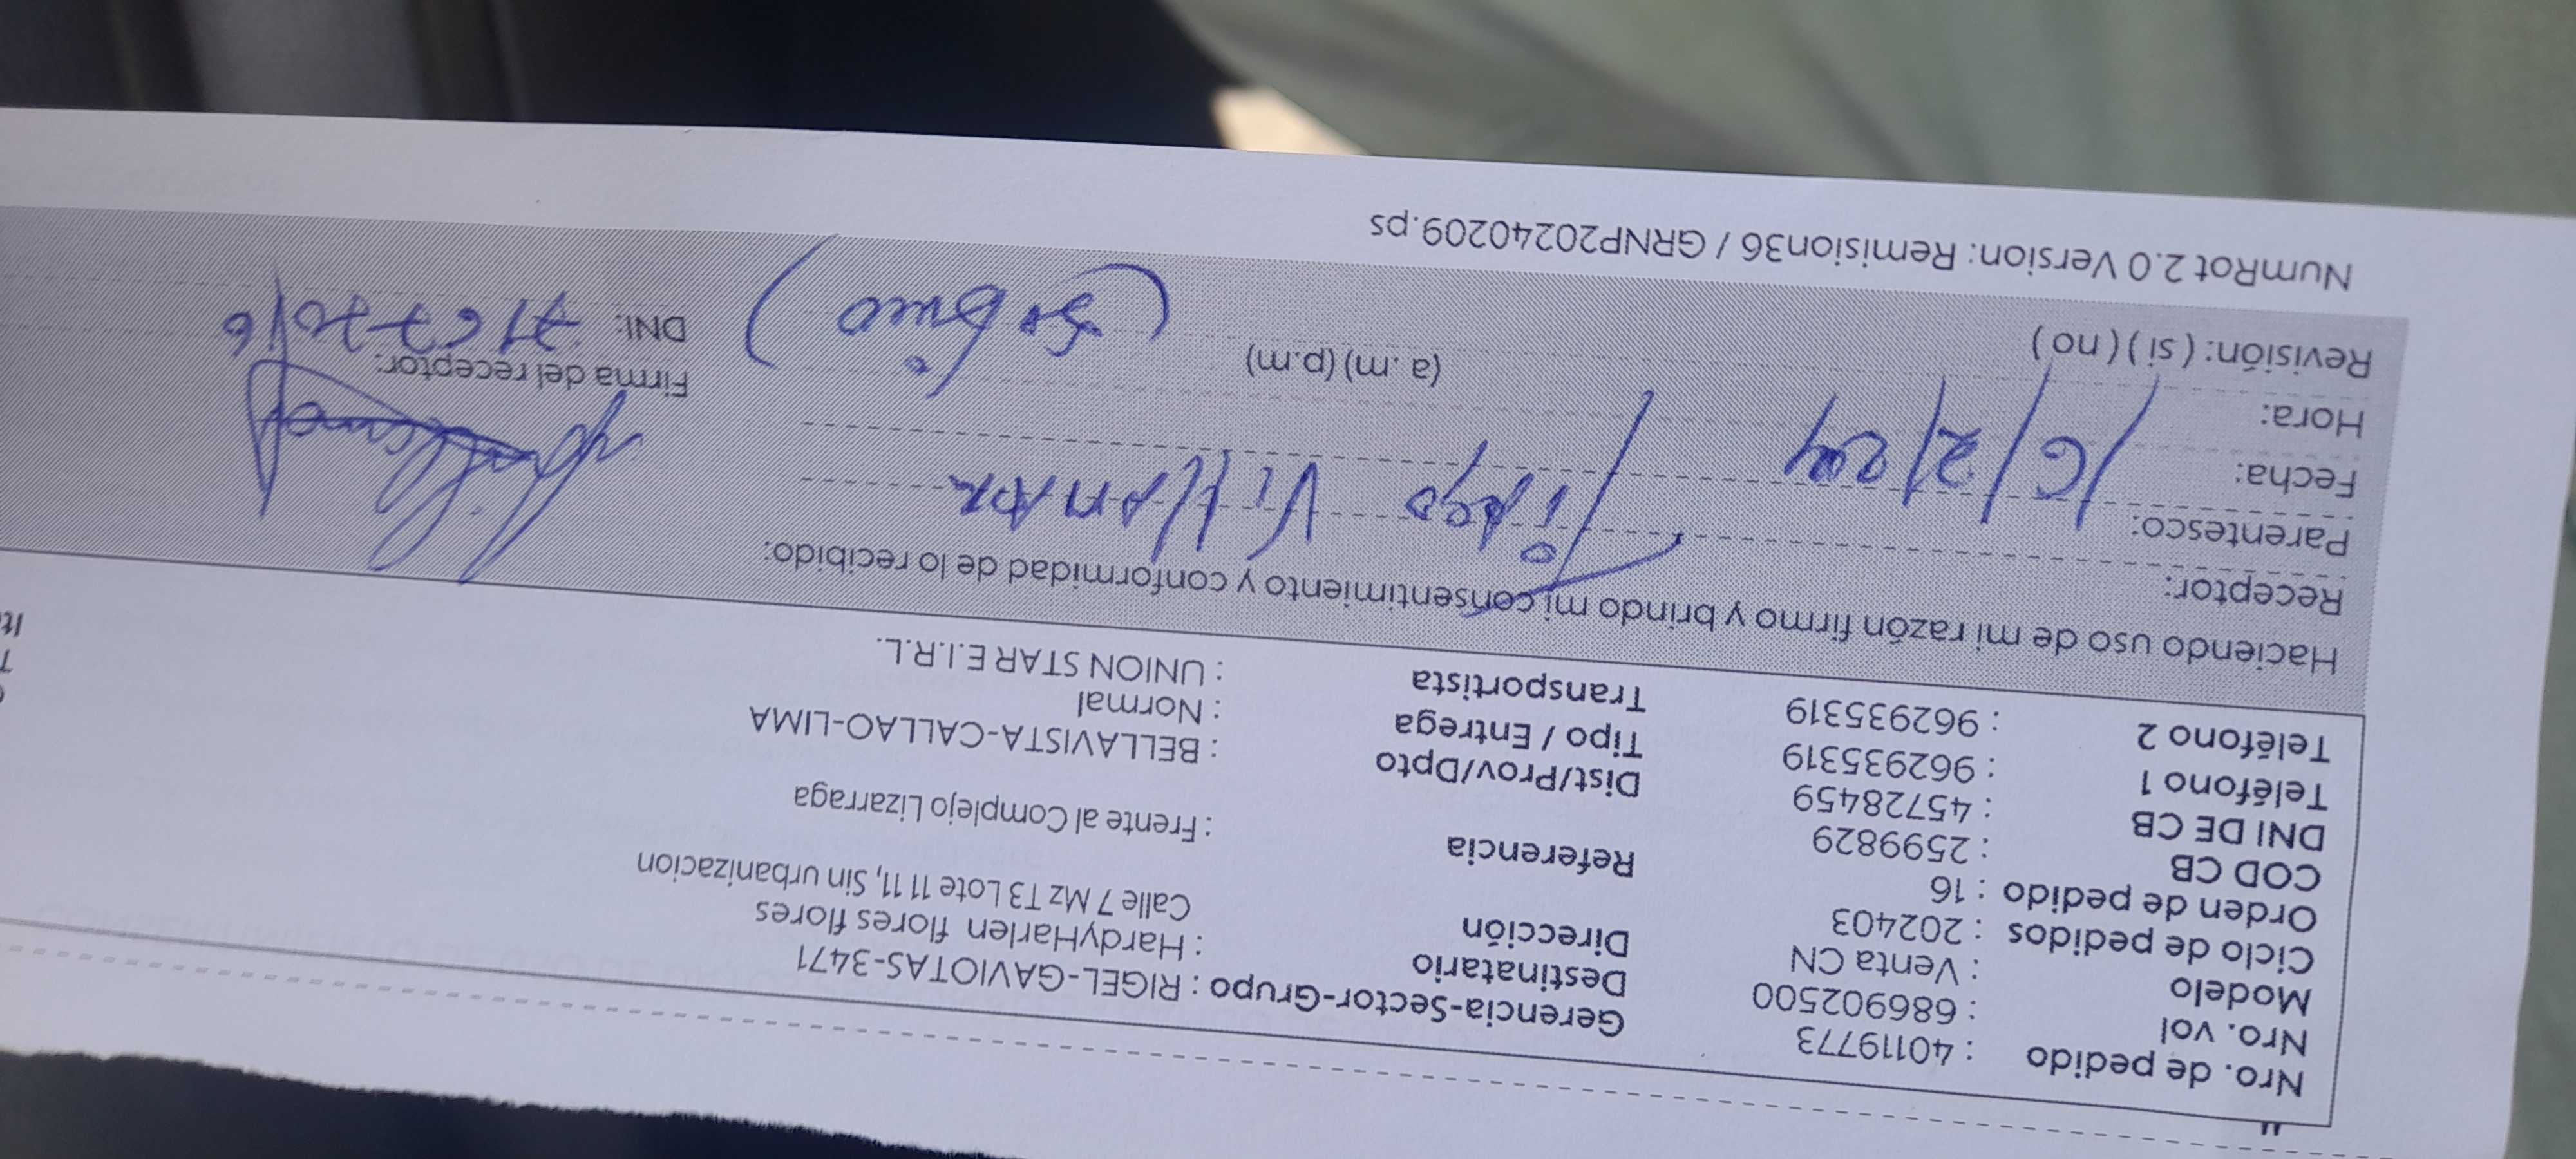 Nro. de pedido : 40119773
Nro. vol : 686902500
Modelo : Venta CN
Ciclo de pedidos : 202403
Orden de pedido : 16
COD CB : 2599829
DNI DE CB : 45728459
Teléfono 1 : 962935319
Teléfono 2 : 962935319
Gerencia-Sector-Grupo : RIGEL-GAVIOTAS-3471
Destinatario : HardyHarlen flores flores
Dirección Calle 7 Mz T3 Lote 11 11, Sin urbanizacion
Referencia : Frente al Complejo Lizarraga
Dist/Prov/Dpto : BELLAVISTA-CALLAO-LIMA
Tipo / Entrega : Normal
Transportista : UNION STAR E.I.R.L.
Haciendo uso de mi razón firmo y brindo mi consentimiento y conformidad de lo recibido:
Receptor:
Parentesco:
Fecha: 16/2/2024
Hora: (a.m) (p.m)
Revisión: ( si ) ( no )
Firma del receptor:
DNI:
NumRot 2.0 Version: Remision36 / GRNP20240209.ps